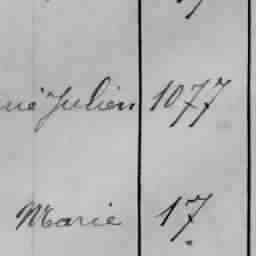 Julien 1077
Marie 17